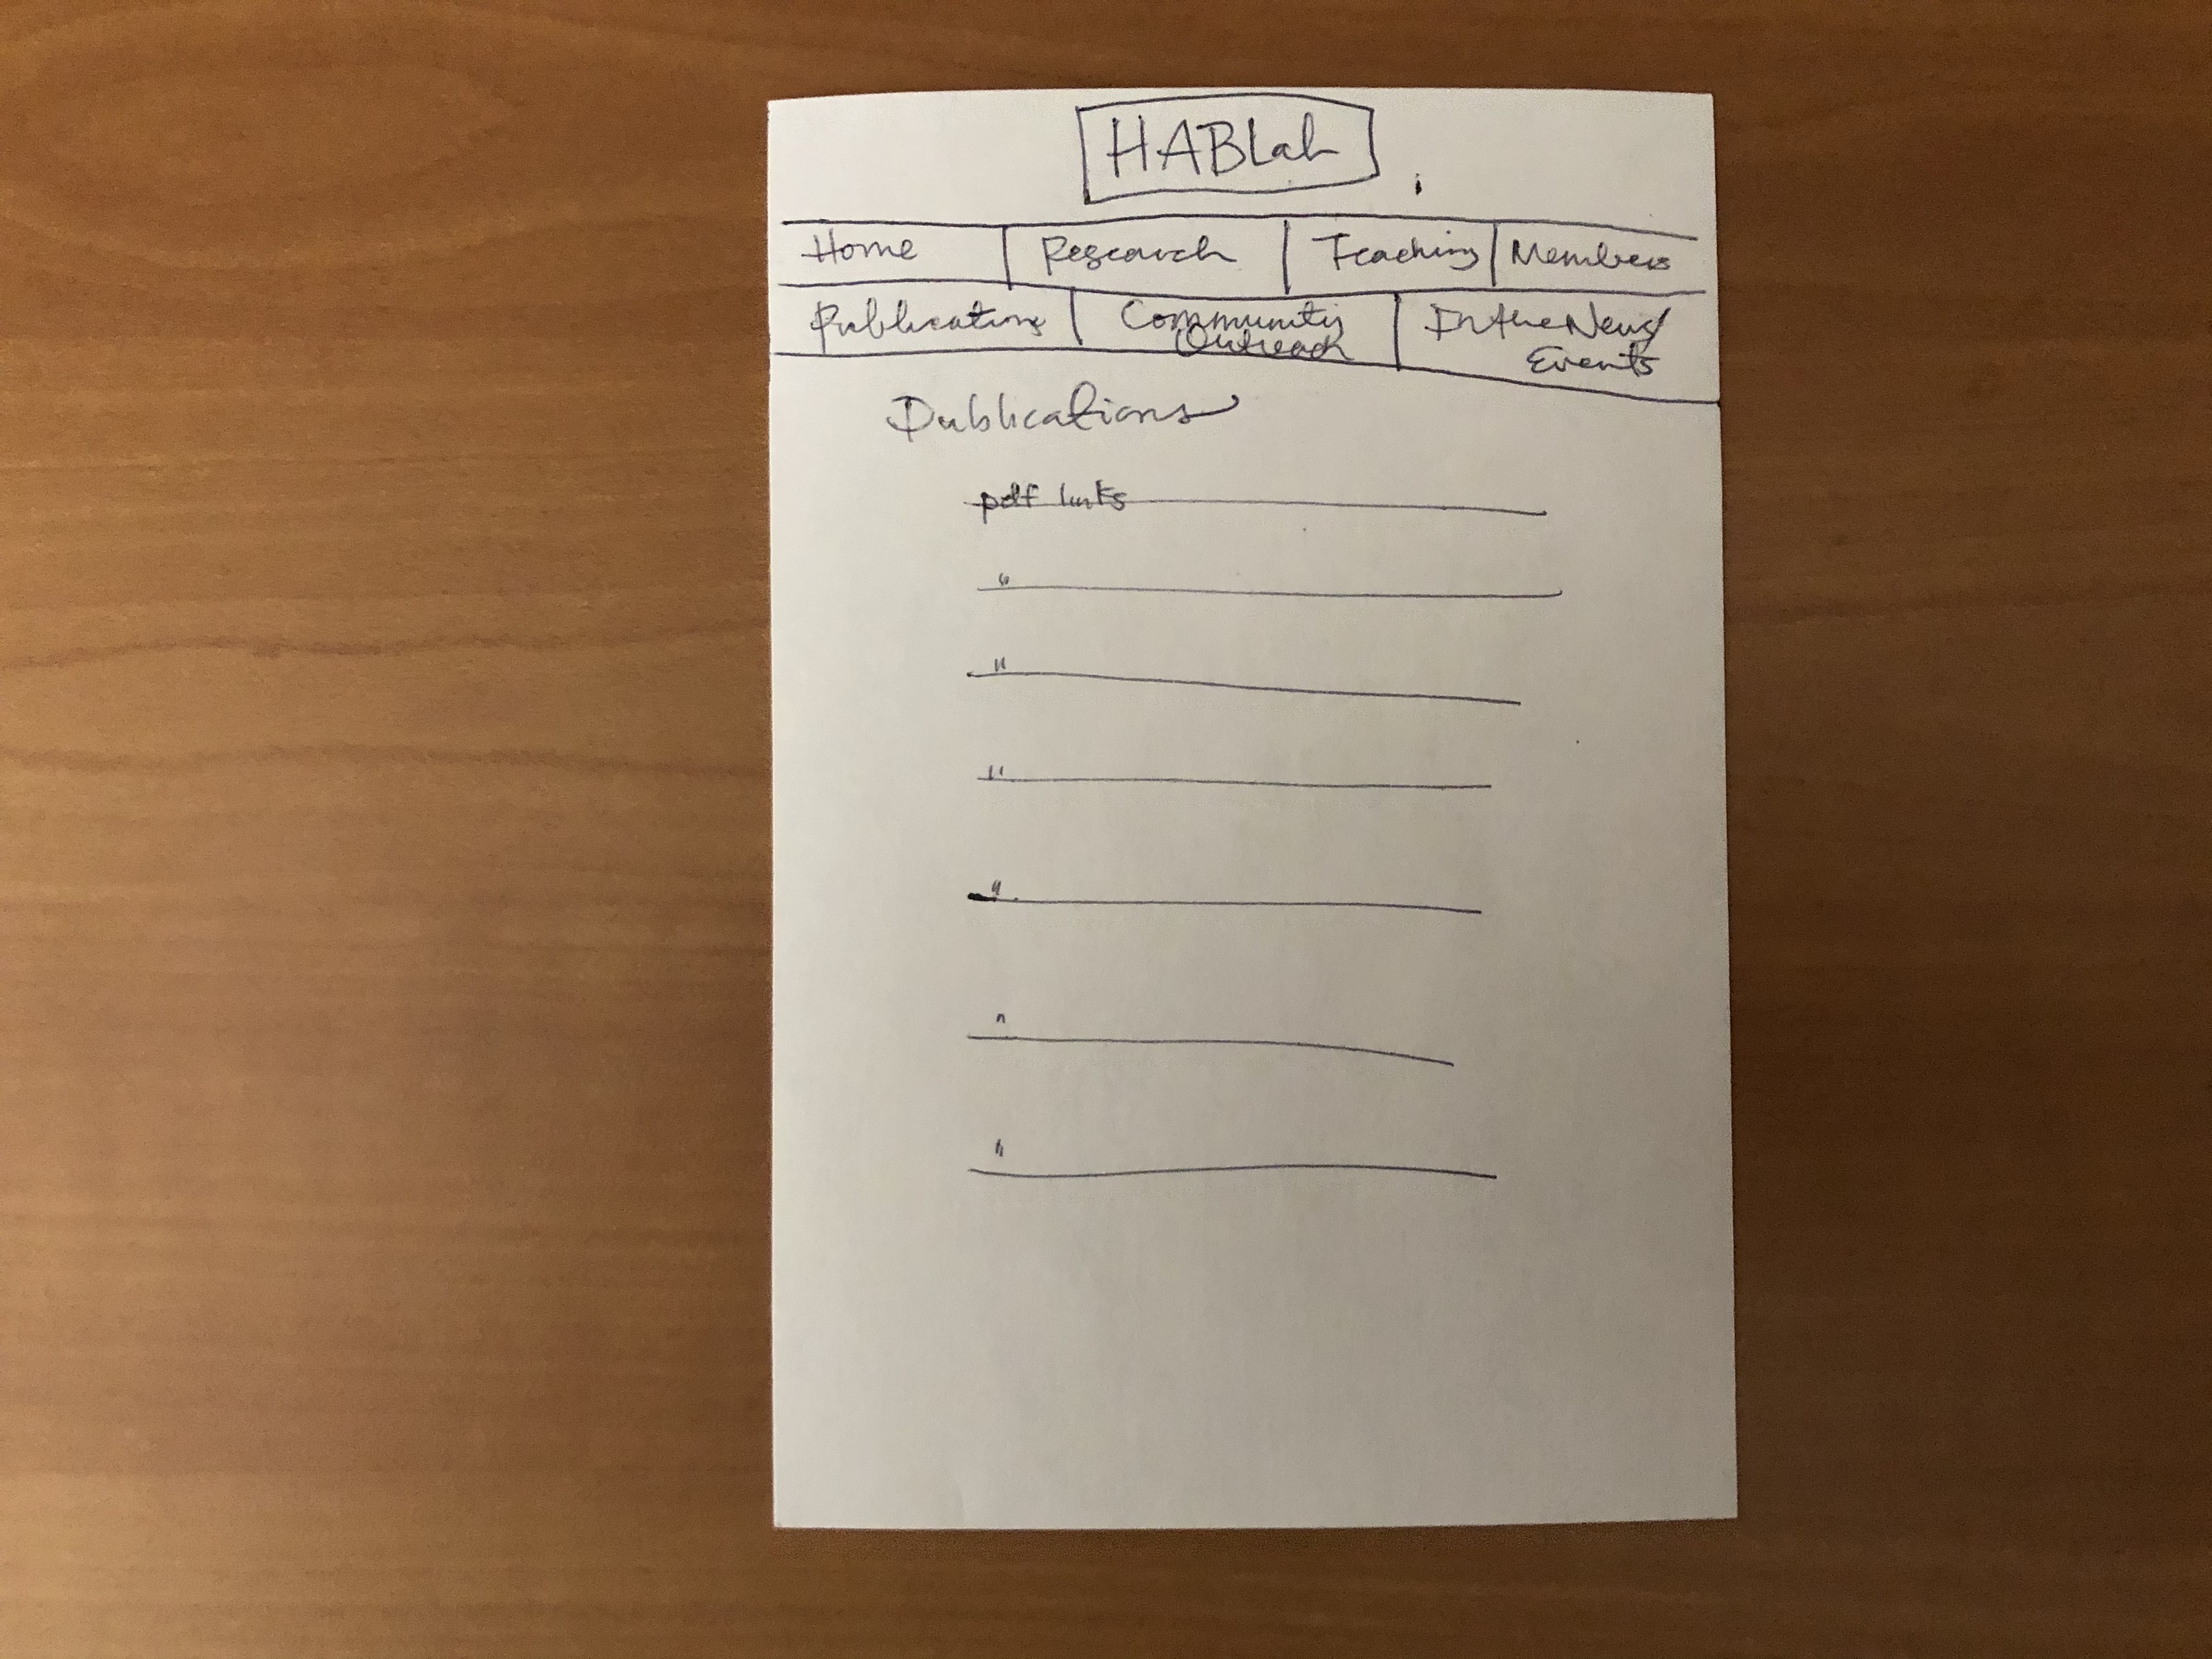 HABLab
Home Research Teaching Members
Publications Community Outreach In the News/ Events
Publications
pdf links
"
"
"
"
"
"